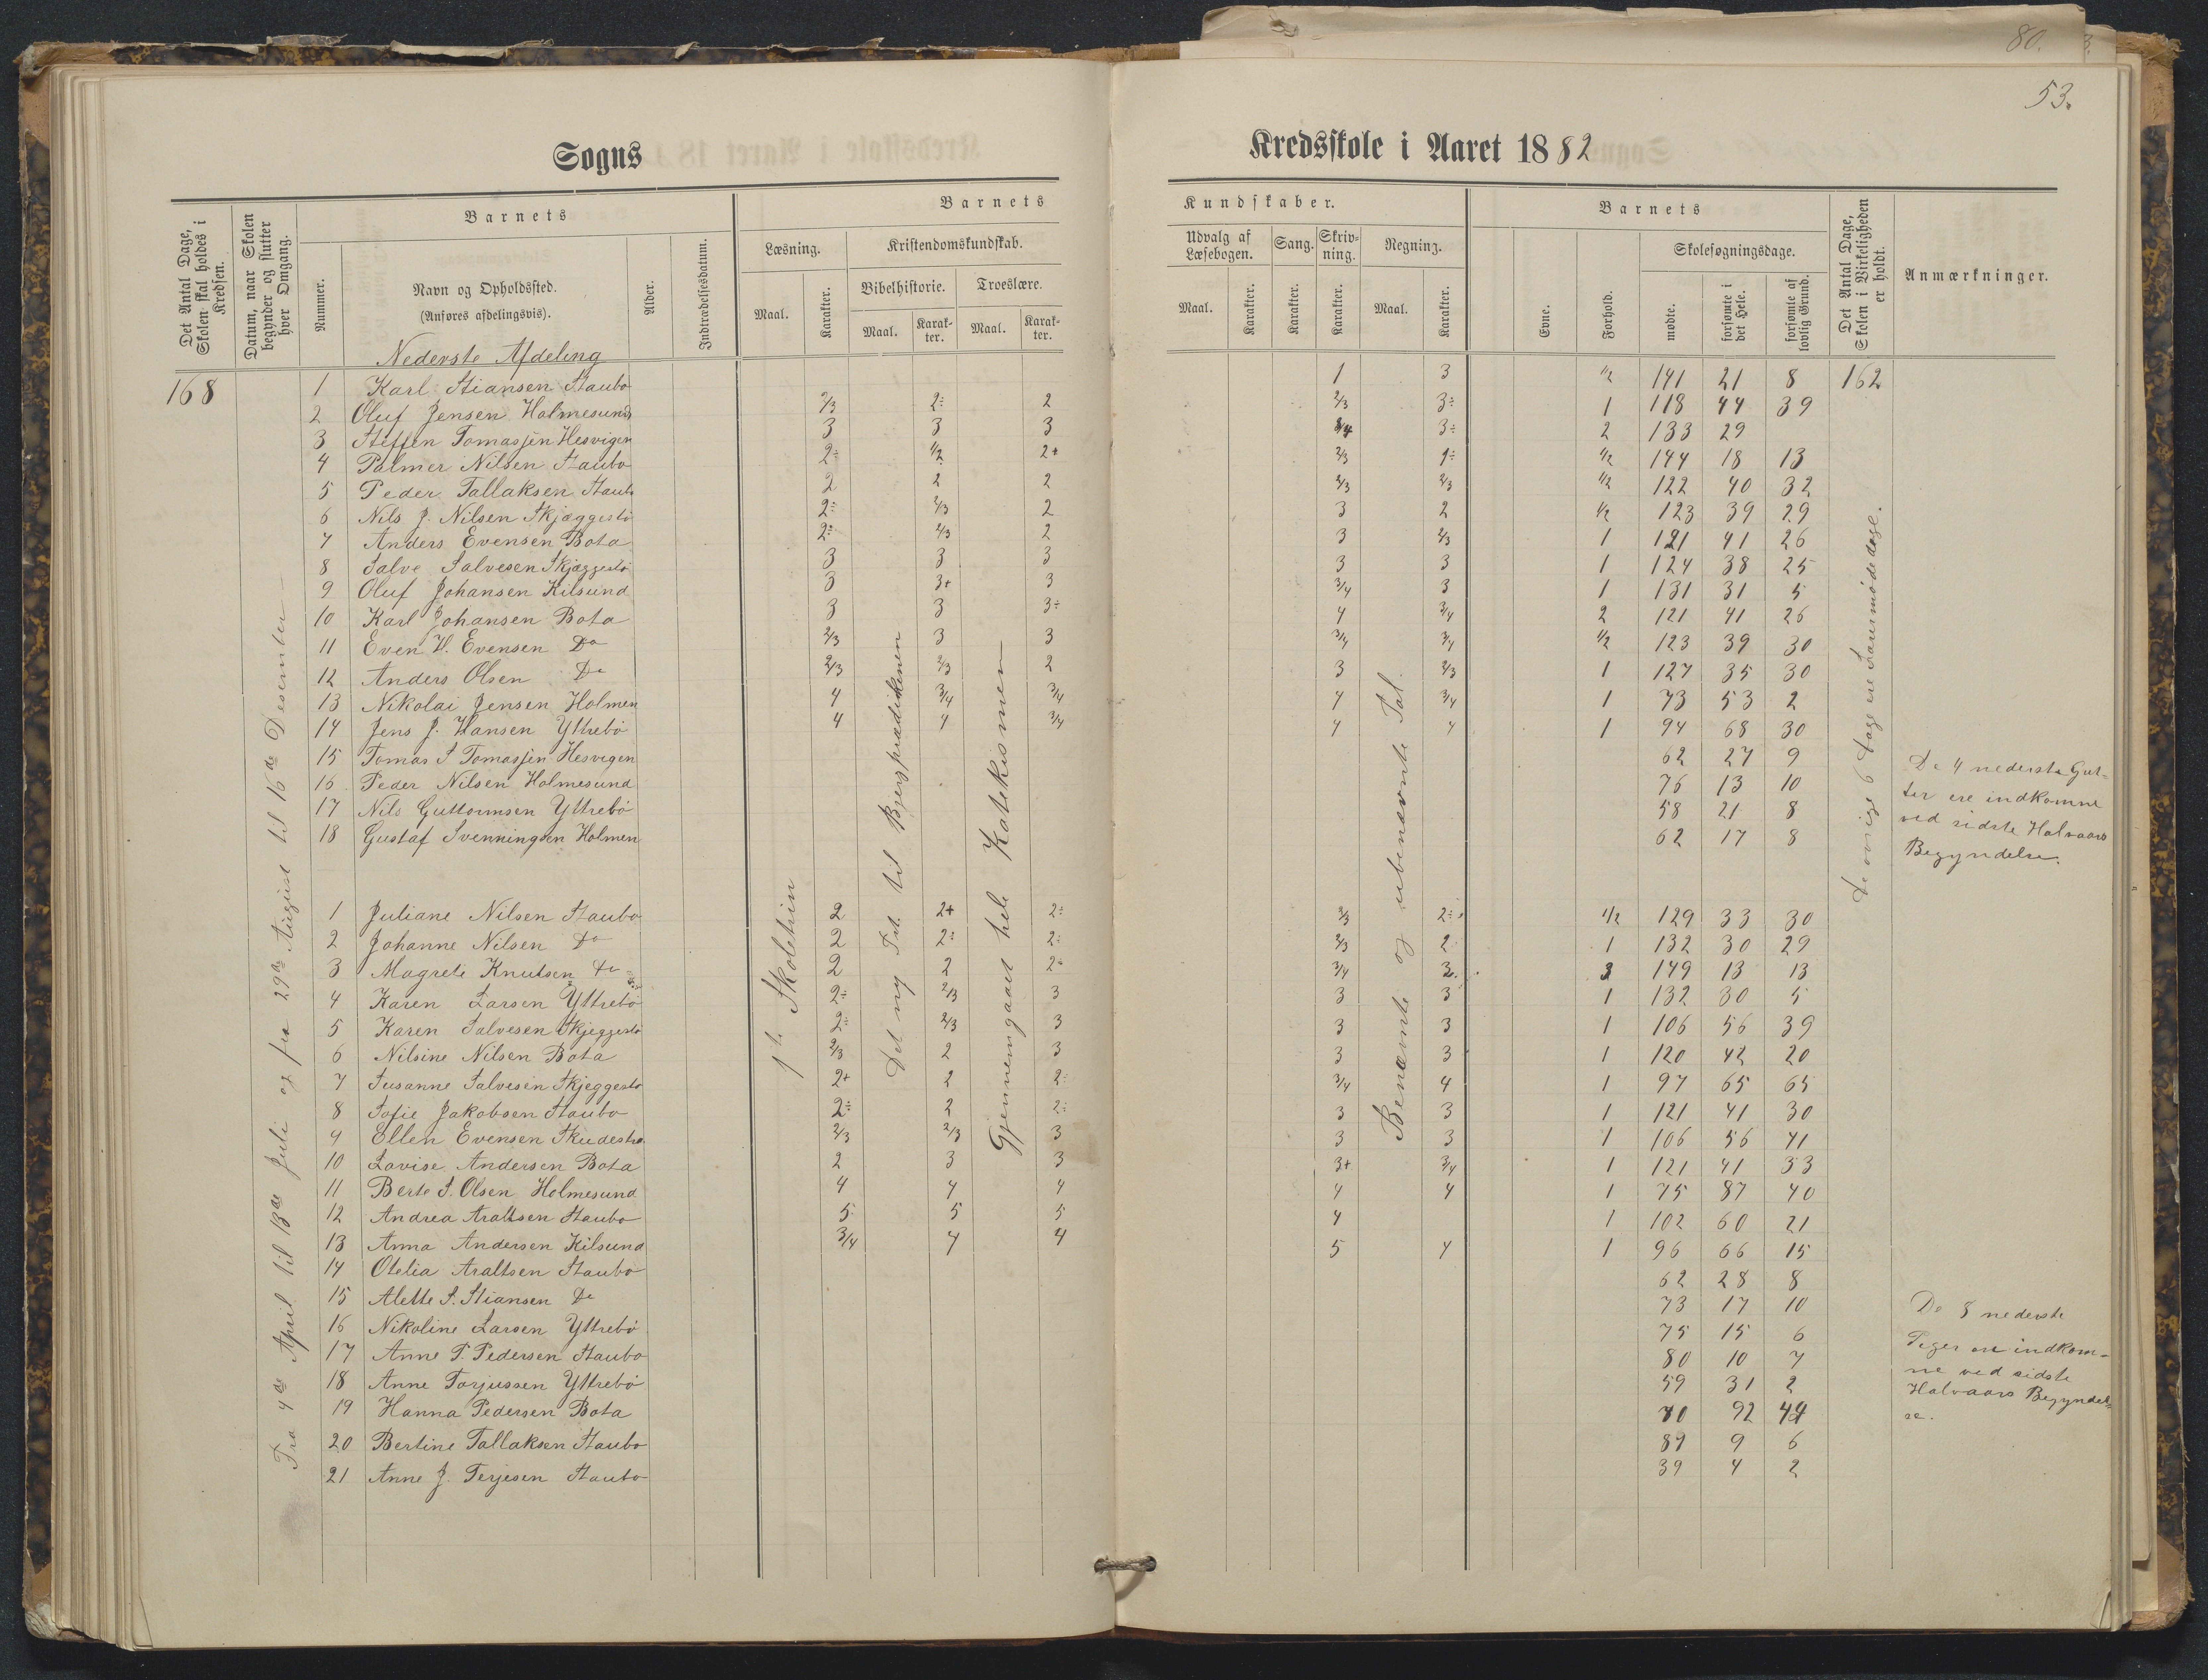 80.
3.
53.
Sogns
Kredsskole i Aaret 1882
Det Antal Dage, Skolen skal holdes i Kredsen.
Datum, naar Skolen begynder og slutter hver Omgang.
Barnets
Nummer.
Navn og Opholdssted.
(Anføres afdelingsvis).
Alder.
Indtrædelsesdatum.
Barnets
Læsning.
Maal.
Karakter.
Kristendomskundskab.
Bibelhistorie.
Maal.
Karakter.
Troeslære.
Maal.
Karakter.
Kundskaber.
Udvalg af Læsebogen.
Maal.
Karakter.
Sang.
Karakter.
Skrivning.
Karakter.
Regning.
Maal.
Karakter.
Barnets
Evne.
Forhold.
Skolesøgningsdage.
mødte.
forsømte i det Hele.
forsømte af lovlig Grund.
Det Antal Dage, Skolen i Virkeligheden er holdt.
Anmærkninger.
Nederste Afdeling
168 1 Karl Stiansen Staubo 1 3 1/2 141 21 8 162
2 Oluf Jensen Holmesund 2/3 2÷ 2 2/3 3÷ 1 118 44 39
3 Steffen Tomassen Hesvigen 3 3 3 3/4 3÷ 2 133 29
4 Palmer Nilsen Staubo 2÷ 1/2 2+ 2/3 2÷ 1/2 144 18 13
5 Peder Tallaksen Staub. 2 2 2 2/3 2/3 1/2 122 40 32
6 Nils J. Nilsen Skjæggestö 2÷ 2/3 2 3 2 1/2 123 39 29
7 Anders Evensen Bota 2÷ 2/3 2 3 2/3 1 121 41 26
8 Salve Salvesen Skjæggestö 3 3 3 3 3 1 124 38 25
9 Oluf Johansen Kilsund 3 3+ 3 3/4 3 1 131 31 5
10 Karl Johansen Bota 3 3 3÷ 4 3/4 2 121 41 26
11 Even W. Evensen Do 2/3 3 3 3/4 3/4 1/2 123 39 30
12 Anders Olsen Do 2/3 2/3 2 3 2/3 1 127 35 30
13 Nikolai Jensen Holmen 4 3/4 3/4 4 3/4 1 73 53 2
14 Jens J. Hansen Yttrebö 4 4 3/4 4 4 1 94 68 30
15 Tomas S Tomassen Hesvigen 62 27 9
16 Peder Nilsen Holmesund 76 13 10
17 Nils Guttormsen Yttrebö 58 21 8
18 Gustaf Svenningsen Holmen 62 17 8
De 4 nederste Gut-
ter ere indkomne
ved sidste Halvaars
Begyndelse.
1 Juliane Nilsen Staubo 2 2+ 2÷ 2/3 2÷ 1/2 129 33 30
2 Johanne Nilsen Do 2 2÷ 2÷ 2/3 2 1 132 30 29
3 Magrete Knutsen Do 2 2 2÷ 3/4 3 149 13 13
4 Karen Larsen Yttrebö 2÷ 2/3 3 3 3 1 132 30 5
5 Karen Salvesen Skjeggestö 2÷ 2/3 3 3 3 1 106 56 39
6 Nilsine Nilsen Bota 2/3 2 3 3 3 1 120 42 20
7 Susanne Salvesen Skjeggestö 2+ 2 2÷ 3/4 4 1 97 65 65
8 Sofie Jakobsen Staubo 2÷ 2 2÷ 3 3 1 121 41 30
9 Ellen Evensen 2/3 2/3 3 3 3 1 106 56 41
10 Lovise Andersen Bota 2 3 3 3+ 3/4 1 121 41 33
11 Berte S. Olsen Holmesund 4 4 4 4 4 1 75 87 40
12 Andrea Araltsen Staubo 5 5 5 4 1 102 60 21
13 Anna Andersen Kilsund 3/4 4 4 5 4 1 96 66 15
14 Otelia Araltsen Staubo 62 28 8
15 Alette S. Stiansen Do 73 17 10
16 Nikoline Larsen Yttrebö 75 15 6
17 Anne P. Pedersen Staubo 80 10 7
18 Anne Torjussen Yttrebö 59 31 2
19 Hanna Pedersen Bota 70 92 44
20 Bertine Tallaksen Staubo 89 9 6
21 Anne J. Terjesen Staubo 39 4 2
De 8 nederste
Piger ere indkom-
ne ved sidste
Halvaars Begyndel-
se.
Fra 4de April til 13de Juli og fra 29de August til 16de Desember
1te Skoletrin
Det ny Tst. til Bjergprædikenen
Gjennemgaaet hele Katekismen
Benævnte og ubenævnte Tal.
De øvrige 6 Dage ere Lærermødedage.